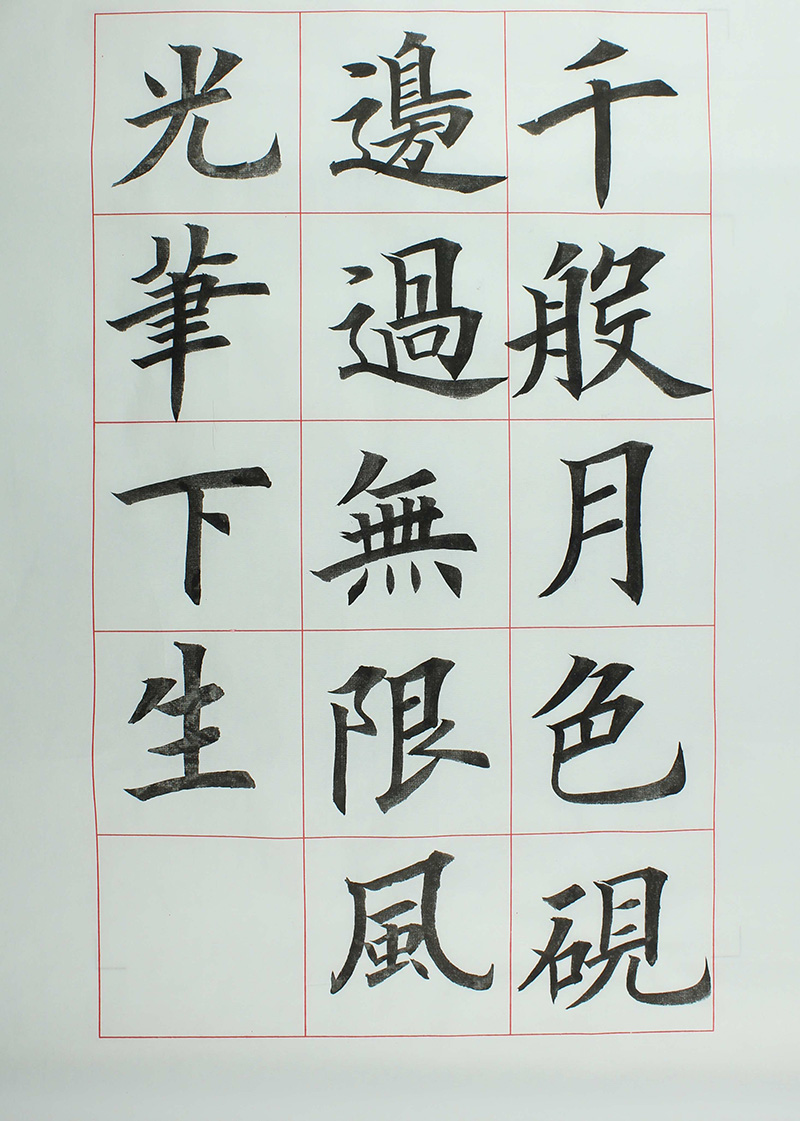 千般月色硯
邊過無限風
光筆下生